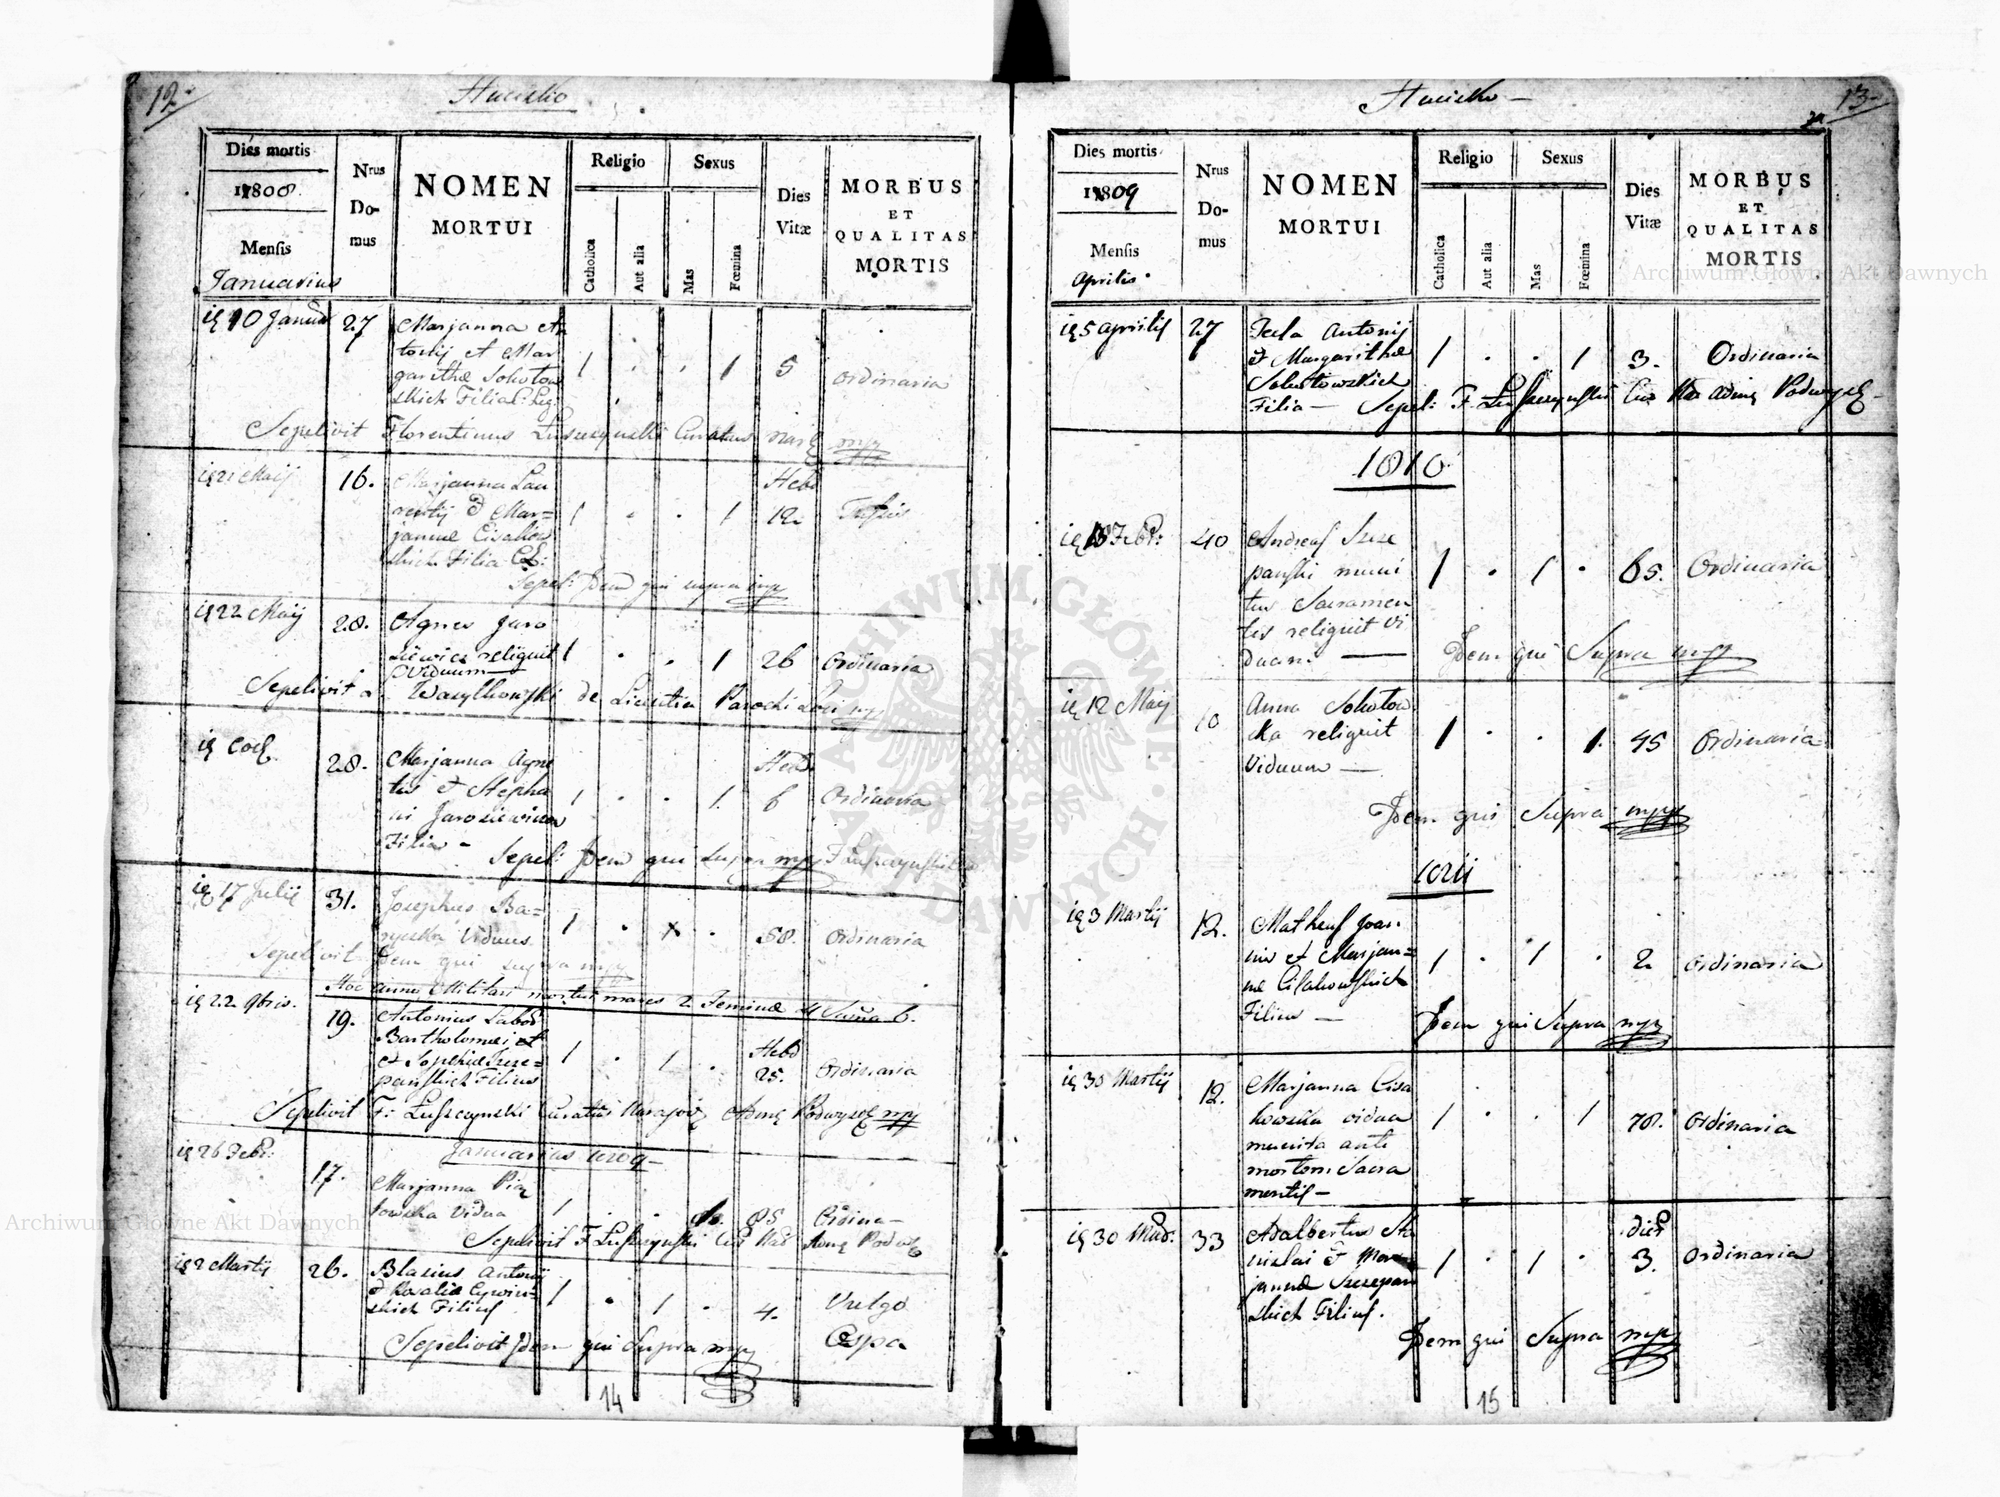 12.
Hucisko
Dies mortis
1800.
Mensis
Januarius
Nrus
Do-
mus
NOMEN
MORTUI
Religio
Catholica
Aut alia
Sexus
Mas
Fœmina
Dies
Vitæ
MORBUS
ET
QUALITAS
MORTIS
27
Marjanna An
tonij et Mar
garithæ Sokołow
skich Filia
1 . . 1 5
Ordinaria
Sepelivit Florentinus Łuszczynski Curatus mpp
21 Maij
16.
Marjanna Lau
rentij et Mar=
jannæ
skich Filia
1 . . 1
Hebd
12
Sepeli: Idem qui supra mpp
22 Maij
28.
Agnes Jaro
siewicz reliquit
Viduum
1 . . 1 26
Ordinaria
Sepelivit Wasylkowski de Licentia Parochi Loci mpp
28.
Marjanna Agne
tis et Stepha
ni Jarosiewicz
Filia -
1 . . 1.
Hebd.
6
Ordinaria
Sepeli: Idem qui supra mpp
17 Julij
31.
Josephus Ba=
Viduus
1 . x . 58.
Ordinaria
Sepelivit Idem qui supra mpp
Hoc anno Militari mortui mares 2 Feminæ 4 Suma 6.
22 9bris.
19.
Antonius
Bartholomæi et
et Sophiæ Szcze=
panskich Filius
1 . 1 .
Hebd
25.
Ordinaria
Sepelivit F: Łuszczynski Curatus mpp
Januarius 1809
26 Febr.
17.
Marjanna
Vidua
1 . . 85
Ordina-
Sepelivit F Łuszczynski
2 Martij
26.
Blasius Antonij
et Rosaliæ
skich Filius
1 . 1 . 4.
Vulgo
Ospa
Sepelivit Idem qui Supra mpp
14
13
Hucisko
Dies mortis
1809
Mensis
Aprilis
Nrus
Do-
mus
NOMEN
MORTUI
Religio
Catholica
Aut alia
Sexus
Mas
Fœmina
Dies
Vitæ
MORBUS
ET
QUALITAS
MORTIS
5 Aprilis
27
Tecla Antonij
et Margarithæ
Sokołowskich
Filia
1 . . 1 3.
Ordinaria
Sepel: F. Łuszczynski
1810
18 Febr:
40
Andreas Szcze
panski muni
tus Sacramen
tis reliquit Vi
duam
1 . 1 . 65.
Ordinaria
Idem qui Supra mpp
12 Maij
10
Anna Sokołow
ska reliquit
Viduum
1 . . 1. 45
Ordinaria
Idem qui Supra mpp
1811
3 Martij
12.
Matheus Joan
nis et Marjan=
næ
Filius
1 . 1 . 2
Ordinaria
Idem qui Supra mpp
30 Martij
12.
Marjanna Cisa
kowska vidua
munita ante
mortem Sacra
mentis
1 . . 1 78.
Ordinaria
33
Adalbertus Sta
nislai et Mar
jannæ Szczepan
skich Filius.
1 . 1 .
dies
3.
Ordinaria
Idem qui Supra mpp
15
ARCHIWUM GŁÓWNE AKT DAWNYCH
Archiwum Główne Akt Dawnych
Archiwum Główne Akt Dawnych